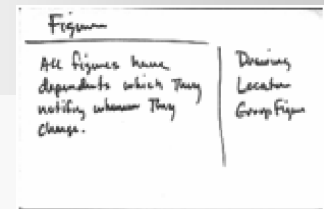 Figure
All figures have
dependents which They
notify whenever They
change.
Drawing
Locator
GroupFigure